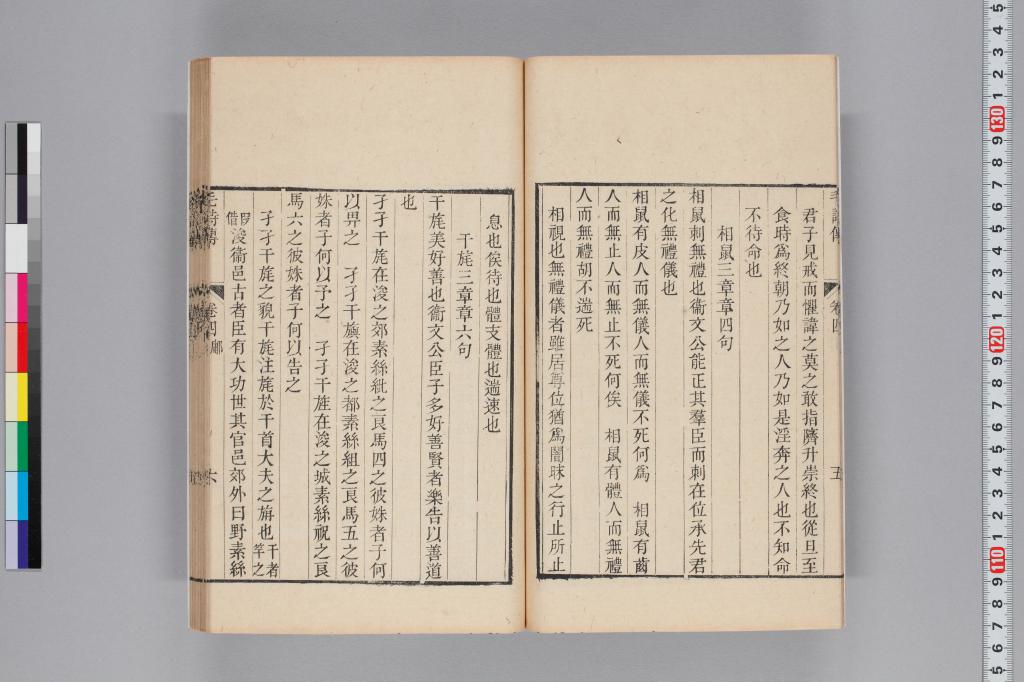 君子見戒而懼諱之莫之敢指隮升崇終也從旦至
食時爲終朝乃如之人乃如是淫奔之人也不知命
不待命也
相鼠三章章四句
相鼠刺無禮也衞文公能正其羣臣而刺在位承先君
之化無禮儀也
相鼠有皮人而無儀人而無儀不死何爲　相鼠有齒
人而無止人而無止不死何俟　相鼠有體人而無禮
人而無禮胡不遄死
相視也無禮儀者雖居尊位猶爲闇昧之行止所止
息也俟待也體支體也遄速也
干旄三章章六句
干旄美好善也衞文公臣子多好善賢者樂告以善道
也
孑孑干旄在浚之郊素絲紕之良馬四之彼姝者子何
以畀之　孑孑干旟在浚之都素絲組之良馬五之彼
姝者子何以予之　孑孑干旌在浚之城素絲祝之良
馬六之彼姝者子何以告之
孑孑干旄之貌干旄注旄於干首大夫之旃也干者竿之
假借浚衞邑古者臣有大功世其官邑郊外曰野素絲
毛詩傳　卷四　五
毛詩傳　卷四鄘　六
5 4 3 2 1 130 9 8 7 6 5 4 3 2 1 120 9 8 7 6 5 4 3 2 1 110 9 8 7 6 5